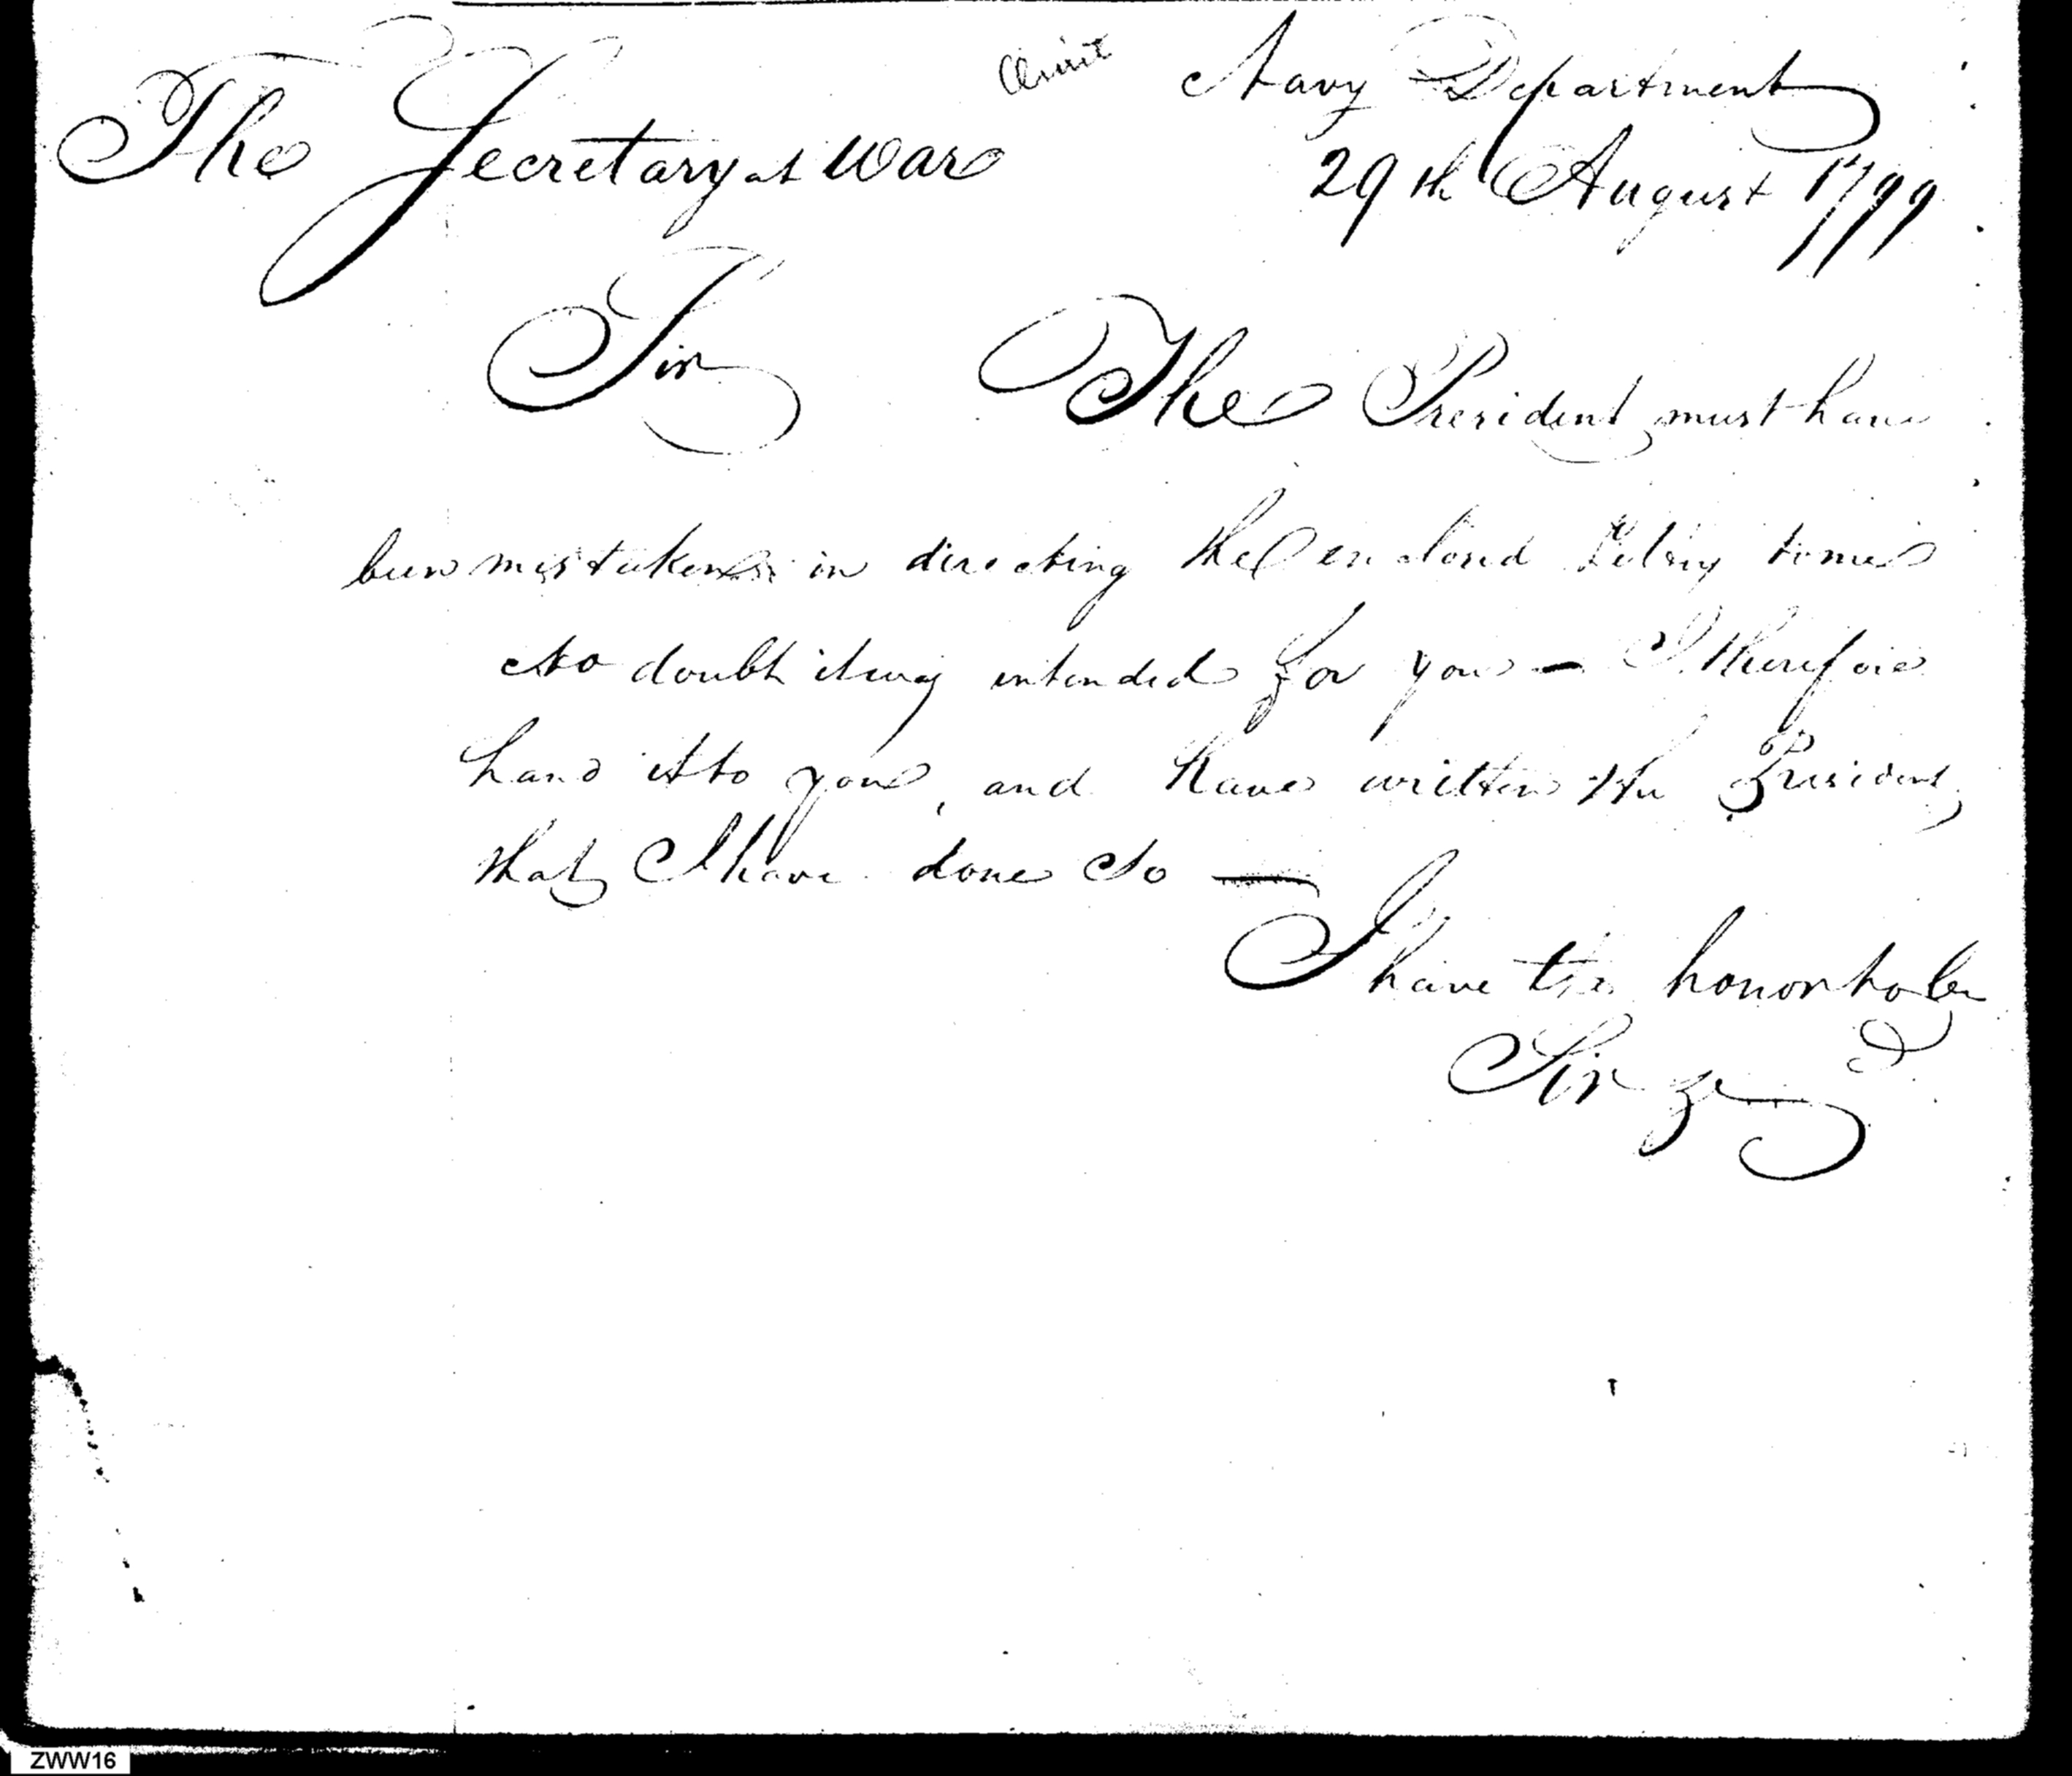 Omit
Navy Department
The Secretary at War
29th August 1799
Sir The President must have
been mistaken in directing the enclosed to me
No doubt it was intended for you — I therefore
hand it to you, and have written the President
that I have done so —
I have the honor to be
Sir &
ZWW16